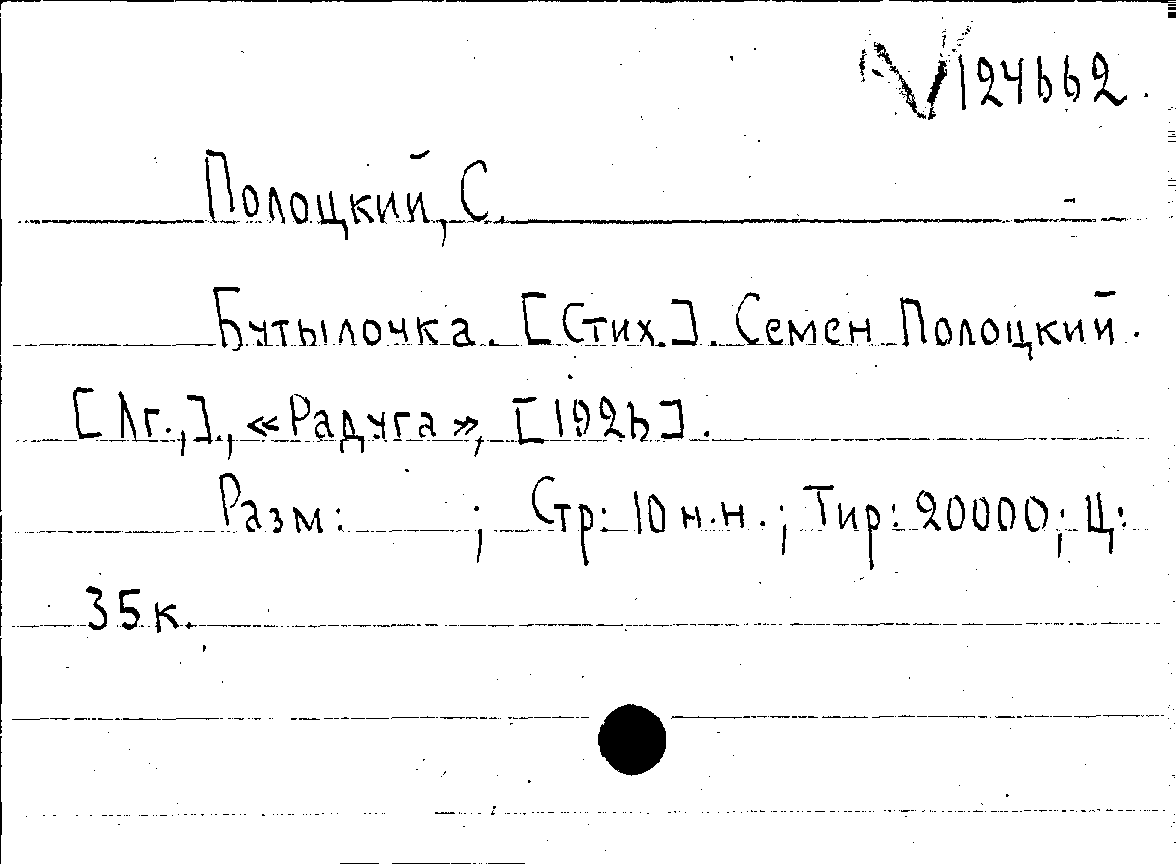 124662.
Полоцкий, С.
Бутылочка. [Стих.]. Семен Полоцкий.
[Лг.,]., «Радуга», [1926].
Разм: ; Стр: 10 н.н.; Тир: 20000; Ц:
35 к.